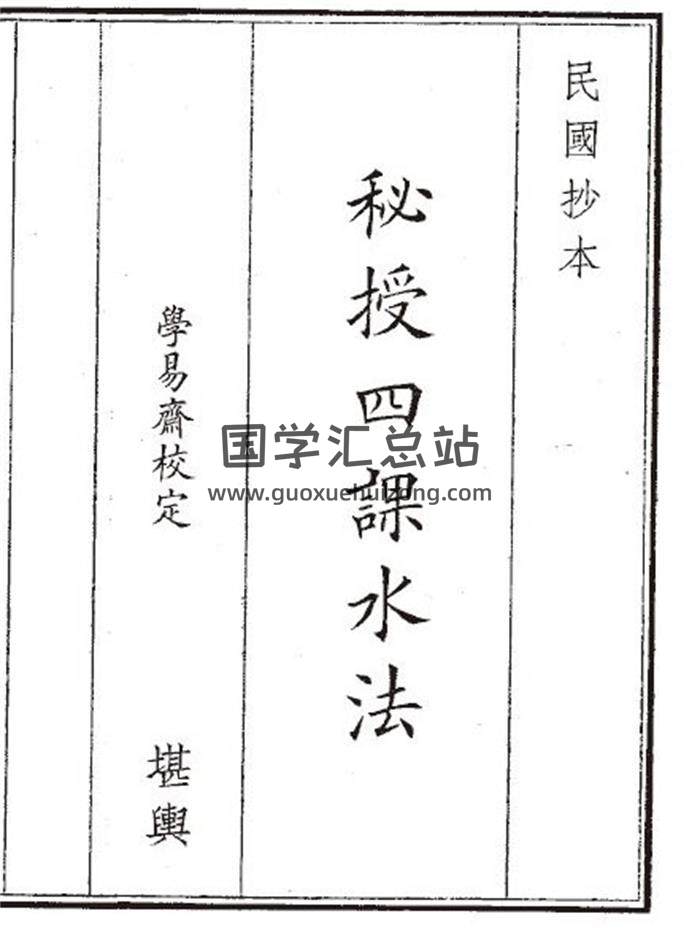 民國抄本
秘授四課水法
學易齋校定
堪輿
国学汇总站
www.guoxuehuizong.com